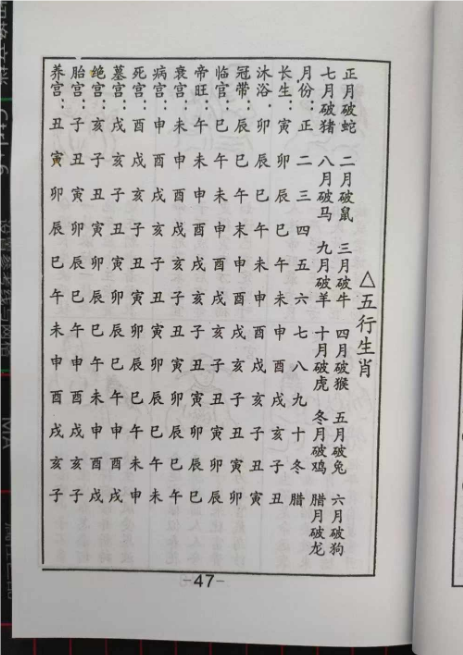 △五行生肖
正月破蛇 二月破鼠 三月破牛 四月破猴 五月破兔 六月破狗
七月破猪 八月破马 九月破羊 十月破虎 冬月破鸡 腊月破龙
月份：正 二 三 四 五 六 七 八 九 十 冬 腊
长生：寅 卯 辰 巳 午 未 申 酉 戌 亥 子 丑
沐浴：卯 辰 巳 午 未 申 酉 戌 亥 子 丑 寅
冠带：辰 巳 午 末 申 酉 戌 亥 子 丑 寅 卯
临官：巳 午 未 申 酉 戌 亥 子 丑 寅 卯 辰
帝旺：午 未 申 酉 戌 亥 子 丑 寅 卯 辰 巳
衰宫：未 申 酉 戌 亥 子 丑 寅 卯 辰 巳 午
病宫：申 酉 戌 亥 子 丑 寅 卯 辰 巳 午 未
死宫：酉 戌 亥 子 丑 寅 卯 辰 巳 午 未 申
墓宫：戌 亥 子 丑 寅 卯 辰 巳 午 未 申 戌
绝宫：亥 子 丑 寅 卯 辰 巳 午 未 申 酉 戌
胎宫：子 丑 寅 卯 辰 巳 午 未 申 酉 戌 亥 子
养宫：丑 寅 卯 辰 巳 午 未 申 酉 戌 亥 子
-47-